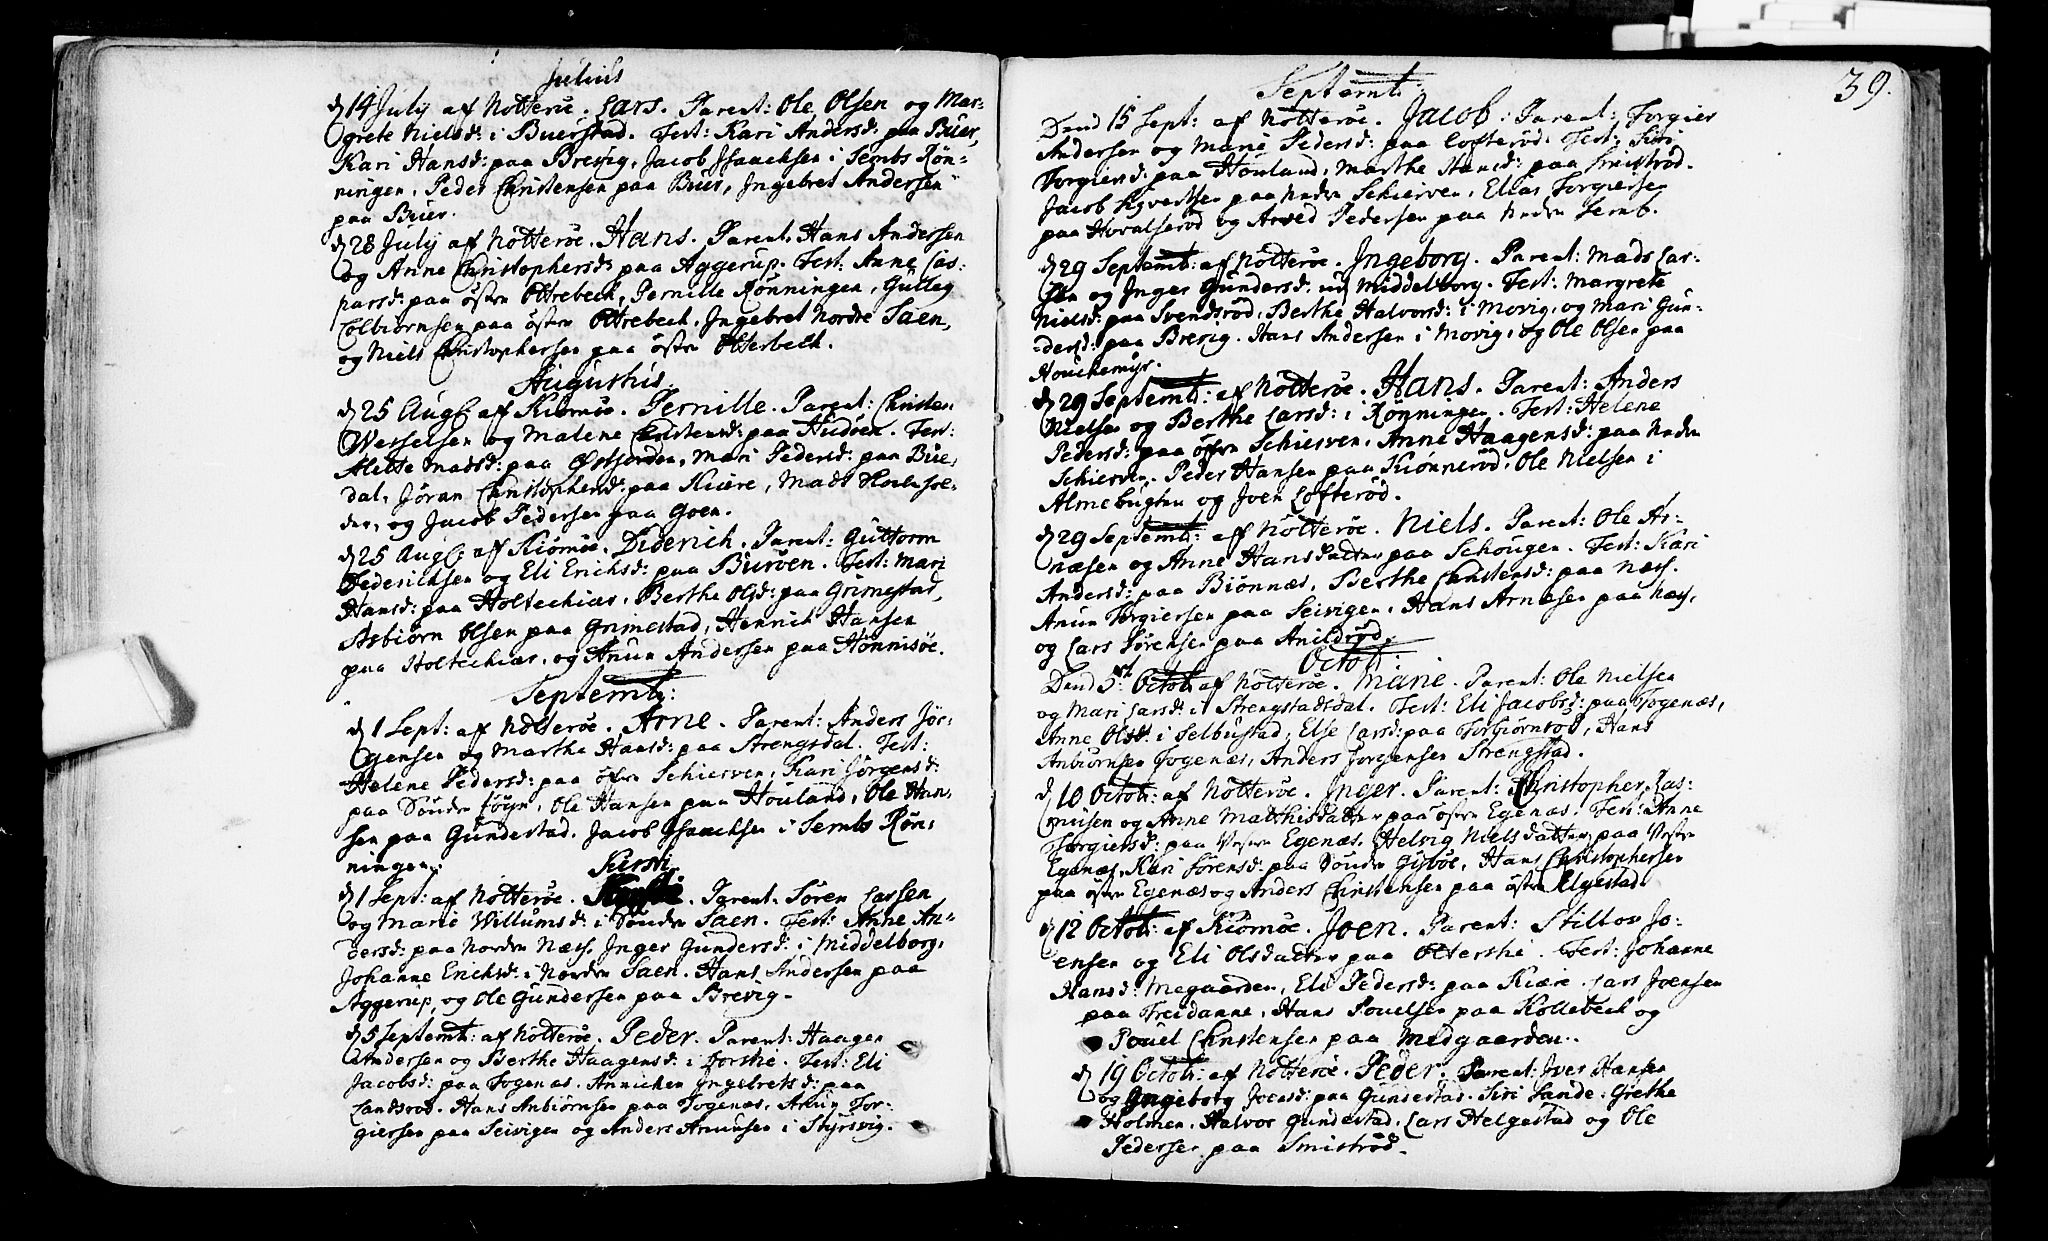 Julius
d 14 July af Nötteröe. Lars. Parent: Ole Olsen og Mar-
grete Nielsd: i Buerstad. Test: Kari Andersd: paa Buer,
Kari Hansd: paa Brevig, Jacob Isaachsen i Sembs Rön-
ningen, Peder Christensen paa Buer, Ingebret Andersen
paa Buer.
d 28 July af Nötteröe. Hans. Parent. Hans Andersen
og Anne Christophersd: paa Aggerup. Test: Anne Cas-
parsd: paa östre Olterbech, Pernille Rönningen, Gulleg
Tolbiörnsen paa östre Olterbech. Ingebret Nordre Saen,
og Niels Christophersen paa östre Olterbech.
Augustus.
d 25 Aug: af Kiömöe. Pernille. Parent: Christen
Wetselsen og Malene Christensd: paa Hudöen. Test:
Mette Madsd: paa Østjorden, Mari Pedersd: paa Bue-
dal, Jöran Christophersd: paa Kiære, Mads
og Jacob Pedersen paa Goen.
d 25 Aug: af Kiömöe. Diderich. Parent: Guttorm
Federichsen og Eli Erichsd: paa Buröen. Test: Mari
Hansd: paa Holtechiær, Berthe Olsd: paa Grimestad,
Asbiörn Olsen paa Grimestad, Henrich Hansen
paa Holtechiær, og Anun Andersen paa Hönnisöe.
Septemb:
d 1 Sept: af Nötteröe. Arne. Parent: Anders Jör-
gensen og Marthe Hansd: paa Strengsdal. Test:
Helene Pedersd: paa öfre Schierven, Kari Jörgensd:
paa Söndre Föyn, Ole Hansen paa Houland, Ole Han-
sen paa Gundestad, Jacob Isaachsen i Sembs Rön-
ningen.
Kirsti.
d 1 Sept: af Nötteröe. Parent: Sören Larsen
og Marie Willumsd: i Söndre Saen. Test: Anne An-
dersd: paa Nordre Næss. Inger Gundersd: i Middelborg,
Johanne Erichsd: i Nordre Saen. Hans Andersen paa
Aggerup, og Ole Gundersen paa Brevig.
d 5 Septemb: af Nötteröe. Peder. Parent: Haagen
Andersen og Berthe Haagensd: i Torshe. Test: Eli
Jacobsd: paa Togenæs. Annichen Ingebretsd: paa
Landsrod. Hans Anbiörnsen paa Togenæs, Anun Tor-
giersen paa Seivigen og Anders Anunsen i Styrsvig.
39.
Septemb:
Dend 15 Sept: af Nötteröe. Jacob. Parent: Torgier
Andersen og Marie Pedersd: paa Lofteröd. Test: Siri
Torgiersd: paa Houland, Marthe Hansd: paa Smiströd.
Jacob Syvertsen paa Nedre Schierven, Elias Torgiersen
paa Hovalseröd og Arved Pedersen paa Nedre Semb.
d 29 Septemb: af Nötteröe. Ingeborg. Parent: Mads Lar-
sen og Inger Gundersd: ved Middelborg. Test: Margrete
Nielsd: paa Svendsröd, Berthe Halvorsd: i Movig, og Mari Gun-
dersd: paa Brevig. Hans Andersen i Movig, og Ole Olsen paa
Houchemyr.
d 29 Septemb: af Nötteröe. Hans. Parent: Anders
Nielsen og Berthe Larsd: i Rönningen. Test: Helene
Pedersd: paa öfre Schierven, Anne Haagensd: paa Nedre
Schierven. Peder Hansen paa Kiönneröd, Ole Nielsen i
Almebugten og Joen Lofteröd.
d 29 Septemb: af Nötteröe. Niels. Parent: Ole Ar-
næsen og Anne Hansdatter paa Schougen. Test: Kari
Andersd: paa Biönnæs, Berthe Christensd: paa Næss.
Anun Torgiersen paa Seivigen, Hans Arnesen paa Næss,
og Lars Sörensen paa Anildröd.
Octob:
Dend 5 Octob: af Nötteröe. Marie. Parent: Ole Nielsen
og Mari Larsd: i Strengstadsdal. Test: Eli Jacobsd: paa Togenæs,
Anne Olsd: i Selbustad, Else Larsd: paa Torbiörnröd, Hans
Anbiörnsen Togenæs, Anders Jorgensen Strengstad.
d 10 Octob: af Nötteröe. Inger. Parent: Christopher Ras-
musen og Anne Matthisdatter paa östre Egenæs. Test: Anne
Torgiersd: paa Vestre Egenæs, Helvig Nielsdatter paa Vestre
Egenæs, Kari Sörensd: paa Söndre Gipöe, Hans Christophersen
paa östre Egenæs og Anders Christensen paa östre Elgestad.
d 12 Octob: af Kiömöe. Joen. Parent: Stillov Jo-
ensen og Eli Olsdatter paa Oltershe. Test: Johanne
Hansd: Megaarden, Eli Pedersd: paa Kiære. Lars Joensen
paa Treidanne, Hans Povelsen paa Kollebech og
Povel Christensen paa Medgaarden.
d 19 Octob: af Nötteröe. Peder. Parent: Iver Hansen
og Ingeborg Joensd: paa Gundestad. Siri Sande. Grethe
Holmen. Halvor Gundestad. Lars Helgestad og Ole
Pedersen paa Smiströd.